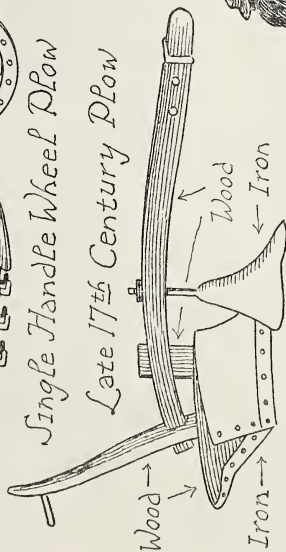 Single Handle Wheel Plow
Late 17th Century Plow
Wood
Iron
Wood
Iron